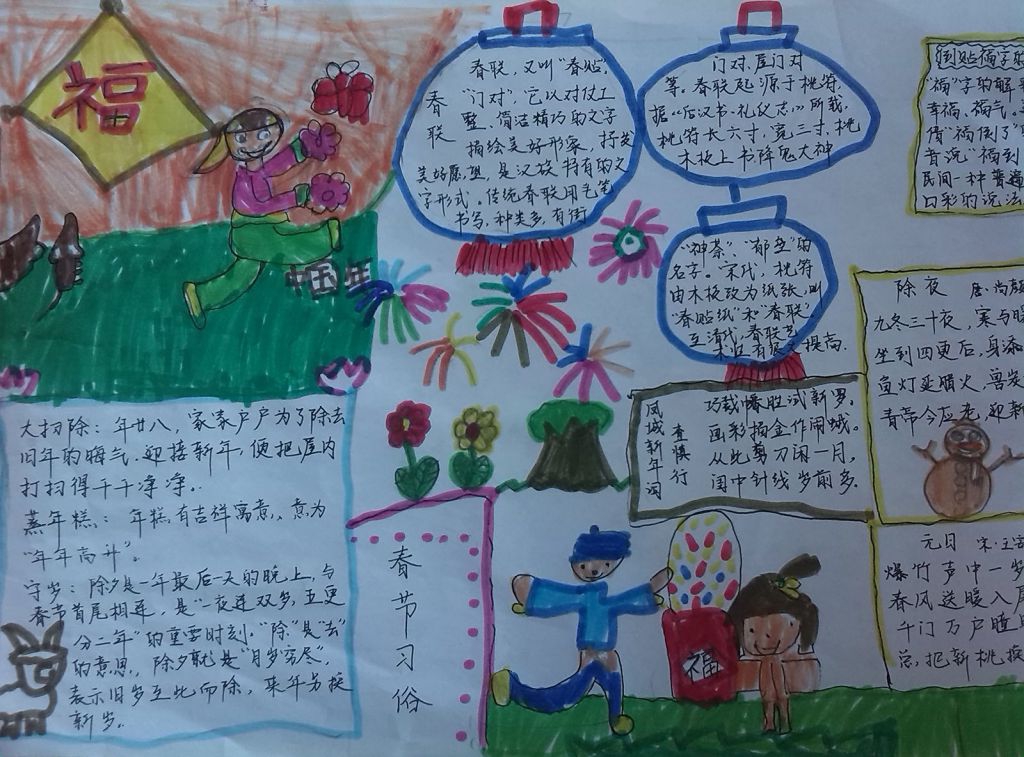 福
中国年
春联
春联，又叫“春贴，
“门对”，它以对仗工
整、简洁精巧的文字
描绘美好形象，抒发
美好愿望，是汉族特有的文
字形式。传统春联用毛笔
书写，种类多，有街
门对，屋门对
等。春联起源于桃符，
据《后汉书·礼仪志》所载，
桃符长六寸，宽三寸，桃
木板上书降鬼大神
“神荼”、“郁垒”的
名字。宋代，桃符
由木板改为纸张，叫
“春贴纸”和“春联”
至清代，春联艺
提高.
倒贴福字
“福”字的解
幸福、福气。
倒”福倒了”
音说“福到
民间一种普遍
口彩的说法
除夜
九冬三十夜，寒与暖
坐到四更后，身添
鱼灯延腊火，兽炭
青帝今应老，迎新
凤城新年词
查慎行
巧裁幡胜试新罗，
画彩描金作闹蛾。
从此剪刀闲一月，
闺中针线岁前多.
元日 宋·王安
爆竹声中一岁
春风送暖入屠
千门万户曈
总把新桃换
大扫除：年廿八，家家户户为了除去
旧年的晦气.迎接新年，便把屋内
打扫得干干净净.
蒸年糕：年糕有吉祥寓意，意为
“年年高升”。
守岁：除夕是一年最后一天的晚上，与
春节首尾相连，是“一夜连双岁，五更
分二年”的重要时刻.“除”是“去”
的意思，除夕就是“月岁穷尽”，
表示旧岁至此而除，来年另换
新岁.
春节习俗
福